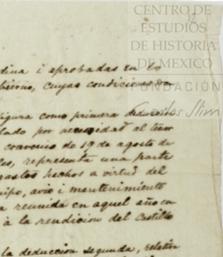 CENTRO DE
ESTUDIOS
DE HISTORIA
DE MÉXICO
FUNDACIÓN
Carlos Slim
dina i aprobadas en la
bierno, cuyas condiciones
figura como primera
lado por necesidad al
convenio de 19 de agosto de
les, representa una parte
gastos hechos a virtud del
uipo, avio i mantenimiento
reunida en aquel año en
á la rendicion del Castillo
la deduccion segunda, relativa